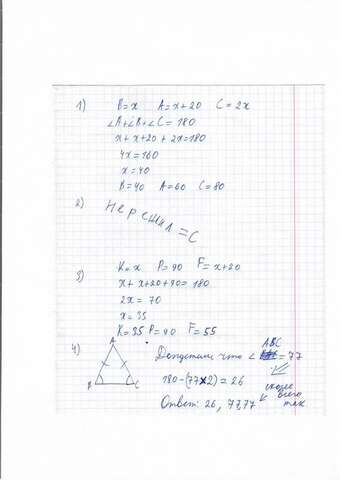 1) B=x A=x+20 C=2x
∠A+∠B+∠C=180
x+x+20+2x=180
4x=160
x=40
B=40 A=60 C=80
2) Не решил =C
3) K=x P=90 F=x+20
x+x+20+90=180
2x=70
x=35
K=35 P=90 F=55
4) A B C
Допустим что ∠ ABC =77
180-(77x2)=26
Ответ: 26, 77,77
скорее всего так